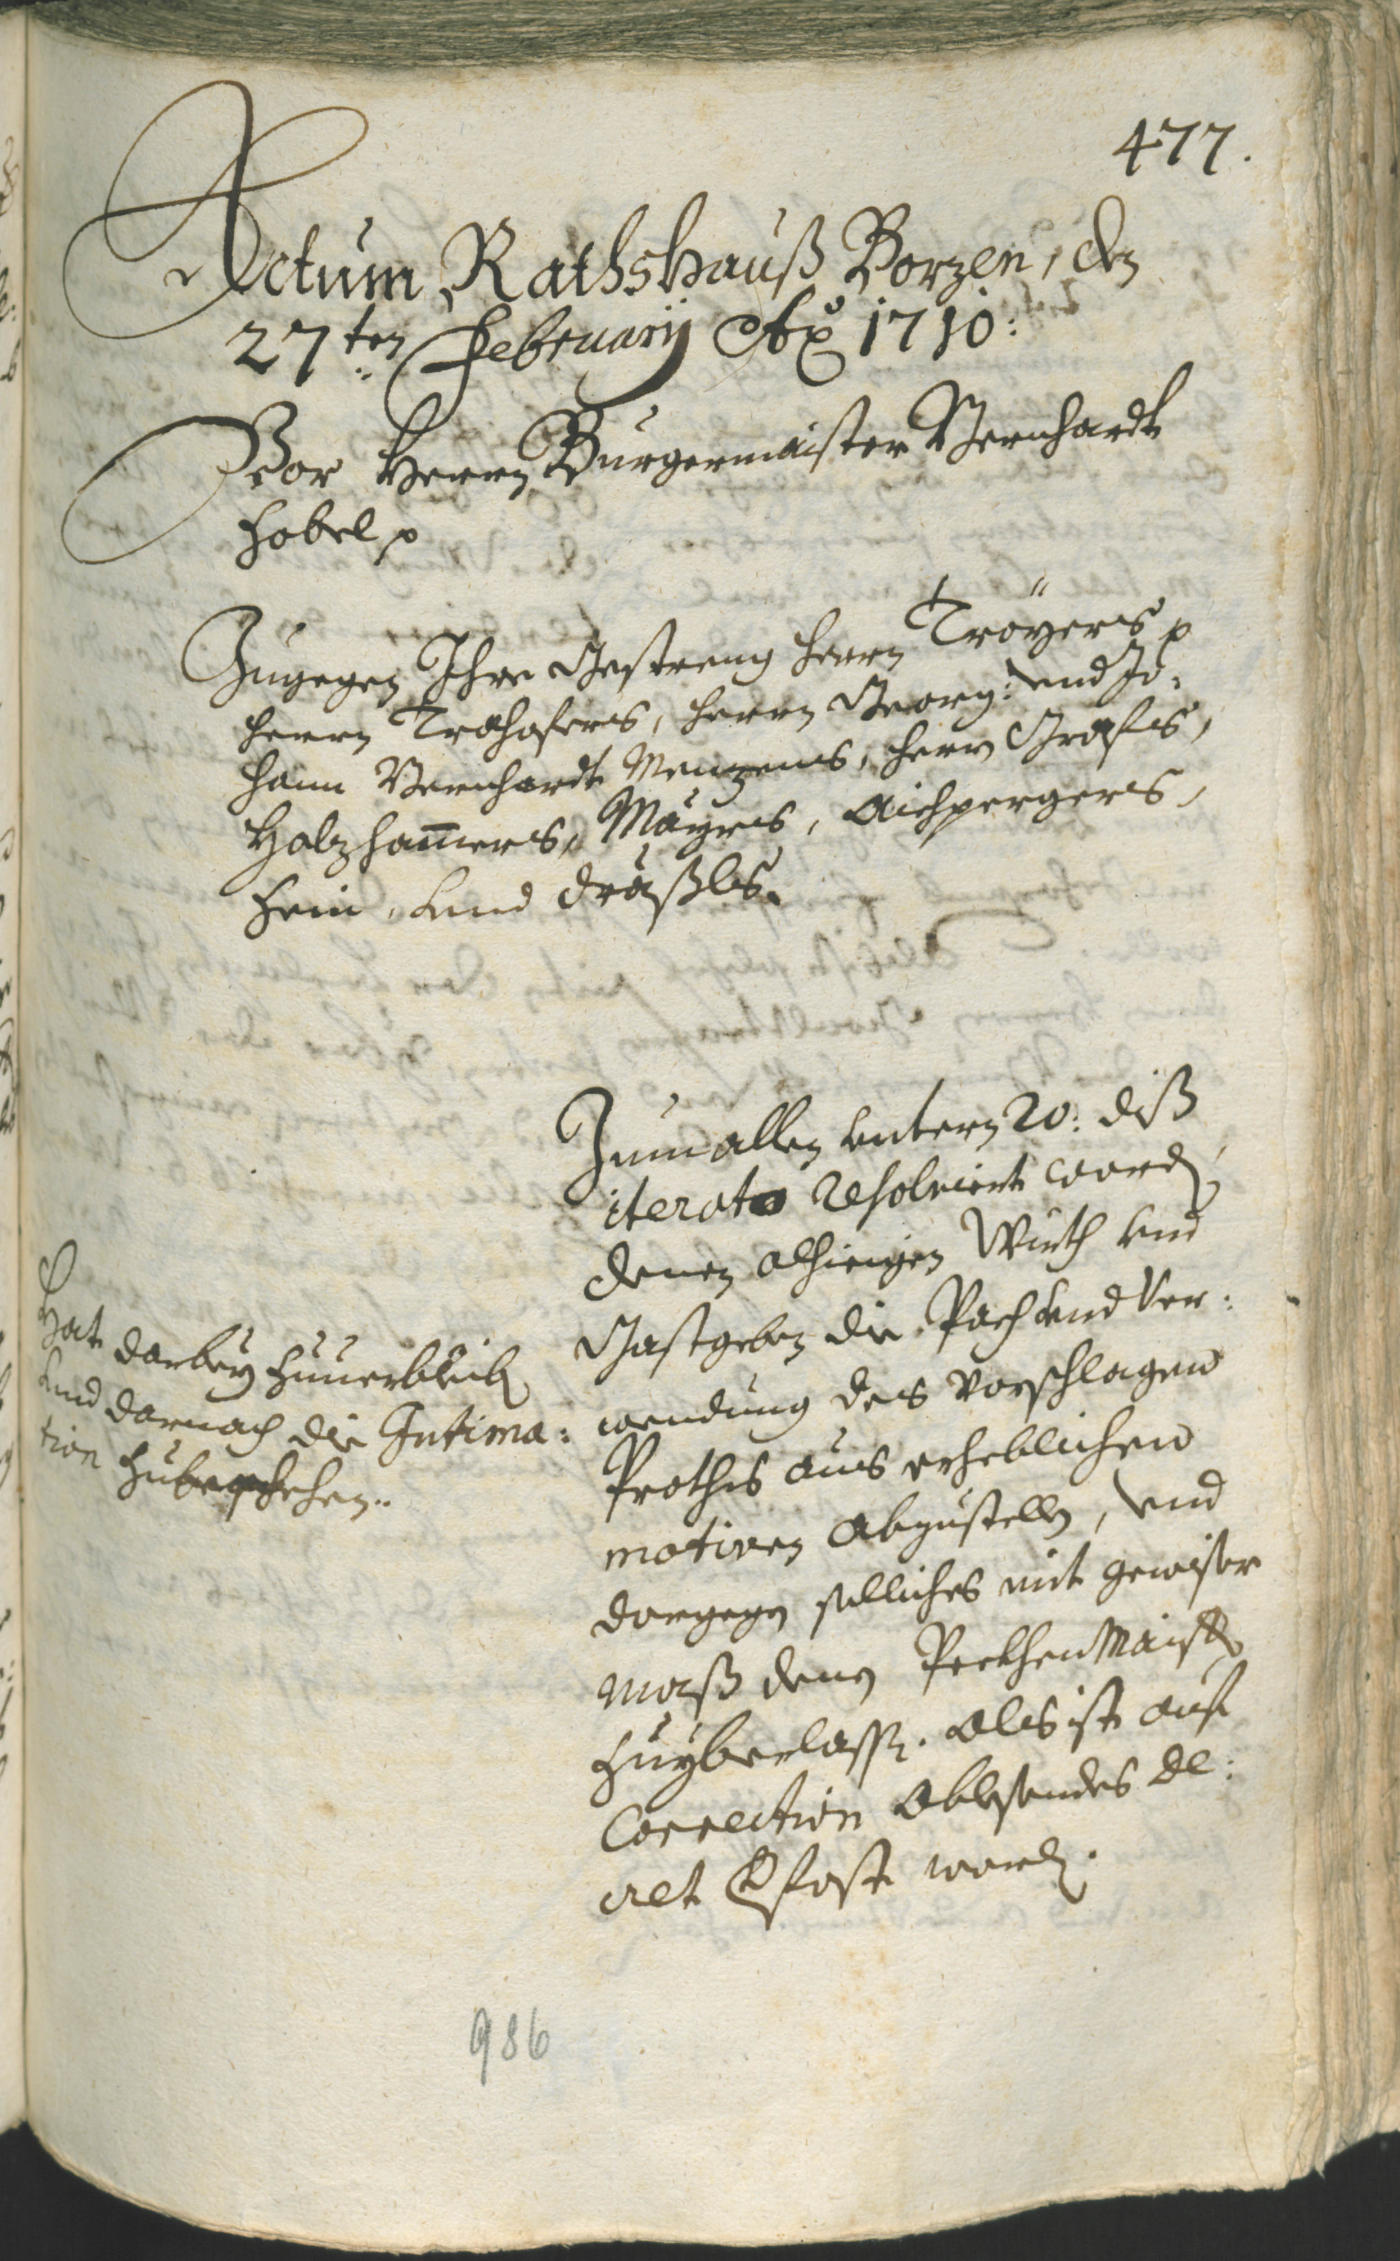 477.
Actum Rathshauß Bozen, den
27ten Februarii Ao 1710:
Vor Herrn Burgermaister Bernhardt
Hobel p
Zugegen Ihre Gestreng Herrn Tröyers p
Herrn Trohofers, Herrn Georg: vnd Jo:
hann Bernhardt Menzens, Herrn Grafs,
Holzhamers, Mayrs, Aichpergers,
Hein, vnd Draßls.
Zumallen vntern 20: diß
iterato resolviert worden,
denen alhiesigen Würth vnd
Gastgeben die Pach vnd Ver:
wendung des vorschlagen
Prothes aus erheblichen
motiven abzustellen, vnd
dargegen solliches mit gewiser
maß denen Peckhen Maister
zuyberlassen. Als ist auf
Correction ablesendes De:
cret verfast worden.
Hat darbey zuuerbleiben
vnd darnach die Intima:
tion zubeschehen.
986